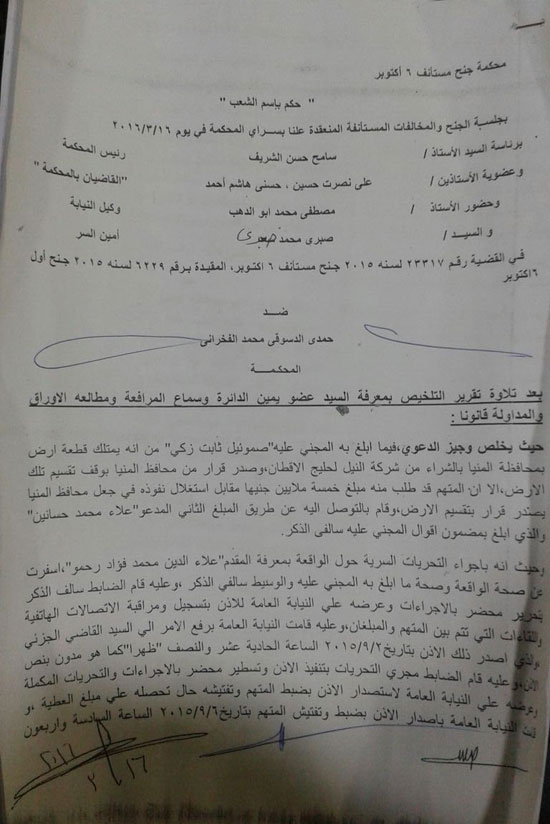 محكمة جنح مستأنف ٦ أكتوبر
" حكم بإسم الشعب "
بجلسة الجنح والمخالفات المستأنفة المنعقدة علنا بسراي المحكمة في يوم ٢٠١٦/٣/١٦
برئاسة السيد الأستاذ / سامح حسن الشريف رئيس المحكمة
وعضوية الأستاذين / على نصرت حسين ، حسنى هاشم أحمد "القاضيان بالمحكمة"
وحضور الأستاذ / مصطفى محمد ابو الدهب وكيل النيابة
و السيد / صبرى محمد صبرى أمين السر
في القضية رقم ٢٣٣١٧ لسنه ٢٠١٥ جنح مستأنف ٦ اكتوبر، المقيدة برقم ٦٢٢٩ لسنه ٢٠١٥ جنح أول
٦اكتوبر
ضد
حمدى الدسوقى محمد الفخرانى
المحكمة
بعد تلاوة تقرير التلخيص بمعرفة السيد عضو يمين الدائرة وسماع المرافعة ومطالعه الاوراق
والمداولة قانونا :
حيث يخلص وجيز الدعوي،فيما ابلغ به المجني عليه"صموئيل ثابت زكي" من انه يمتلك قطعة ارض
بمحافظة المنيا بالشراء من شركة النيل لحليج الاقطان،وصدر قرار من محافظ المنيا بوقف تقسيم تلك
الارض،الا ان المتهم قد طلب منه مبلغ خمسة ملايين جنيها مقابل استغلال نفوذه في جعل محافظ المنيا
يصدر قرار بتقسيم الارض،وقام بالتوصل اليه عن طريق المبلغ الثاني المدعو"علاء محمد حسانين"
والذي ابلغ بمضمون اقوال المجني عليه سالفى الذكر.
وحيث انه باجراء التحريات السرية حول الواقعة بمعرفة المقدم"علاء الدين محمد فؤاد رحمو"،اسفرت
عن صحة الواقعة وصحة ما ابلغ به المجني عليه والوسيط سالفي الذكر ،وعليه قام الضابط سالف الذكر
بتحرير محضر بالاجراءات وعرضه علي النيابة العامة للاذن بتسجيل ومراقبة الاتصالات الهاتفية
واللقاءات التي تتم بين المتهم والمبلغان،وعليه قامت النيابة العامة برفع الامر الي السيد القاضي الجزئي
والذي اصدر ذلك الاذن بتاريخ٢٠١٥/٩/٢ الساعة الحادية عشر والنصف "ظهرا"كما هو مدون بنص
الاذن،وعليه قام الضابط مجري التحريات بتنفيذ الاذن وتسطير محضر بالاجراءات والتحريات المكملة
وعرضه علي النيابة العامة لاستصدار الاذن بضبط المتهم وتفتيشه حال تحصله علي مبلغ العطية ،و
النيابة العامة باصدار الاذن بضبط وتفتيش المتهم بتاريخ٢٠١٥/٩/٦ الساعة السادسة واربعون
٢٠١٦
٣ ١٦